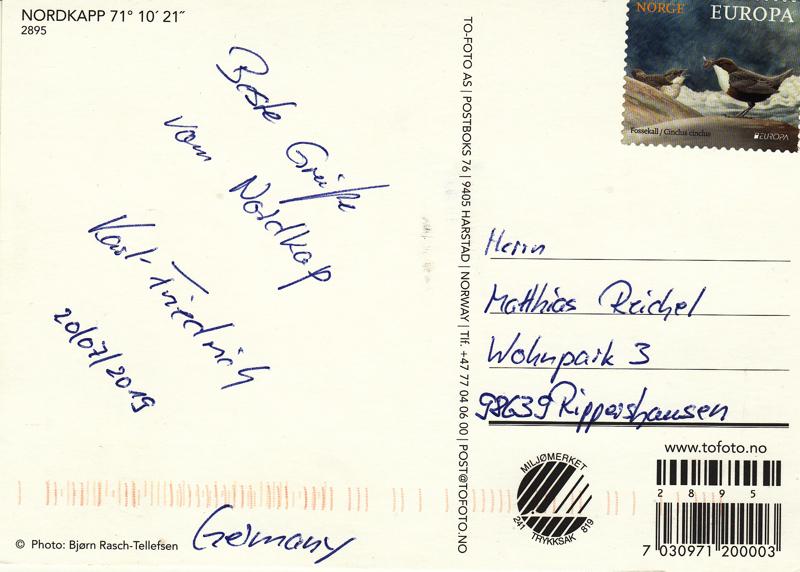 NORDKAPP 71° 10′ 21″
2895
Beste Grüße
vom Nordkap
Karl-Friedrich
20/07/2019
Germany
© Photo: Bjørn Rasch-Tellefsen
TO-FOTO AS | POSTBOKS 76 | 9405 HARSTAD | NORWAY | Tlf. +47 77 04 06 00 | POST@TOFOTO.NO
NORGE
EUROPA
Fossekall / Cinclus cinclus
EUROPA
Herrn
Matthias Reichel
Wohnpark 3
98639 Rippershausen
MILJØMERKET
241 819
TRYKKSAK
www.tofoto.no
2895
7 030971 200003